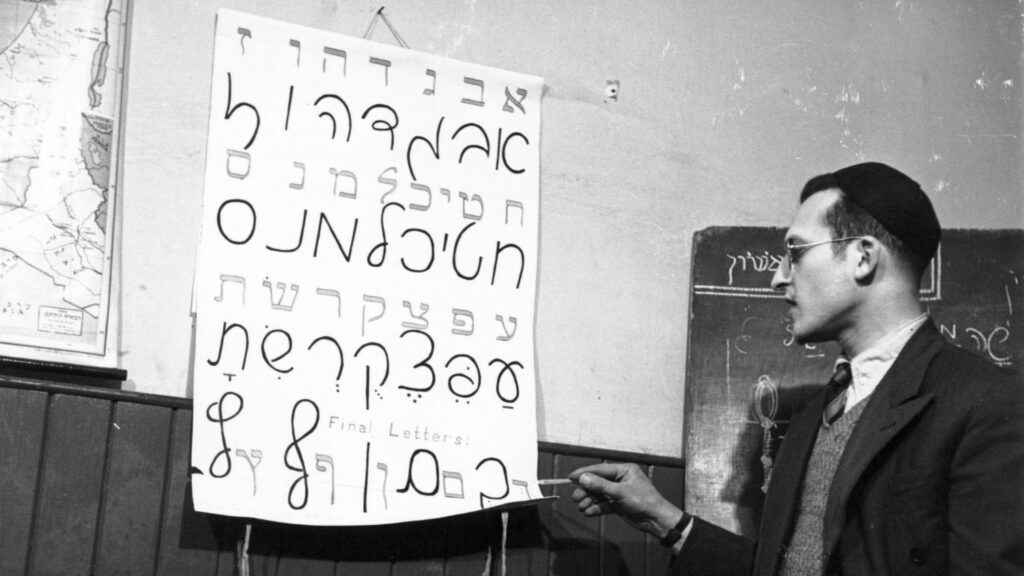 א ב ג ד ה ו ז
א ב ג ד ה ו ז
ח ט י כ ל מ נ ס
ח ט י כ ל מ נ ס
ע פ צ ק ר ש ת
עַ פֶּ צֵ קֻ רְ שֹ תָ
Final Letters:
ך ך ם ם ן ן ף ף ץ ץ